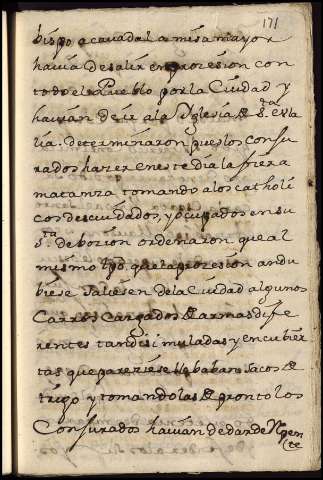 171
bispo acavada la misa mayor
havia de salir en prosesion con
todo el Pueblo por la Ciudad y
havian de ir a la Yglesia de S.ta Eula
lia. determinaron pues los conju
rados hazer en este dia la fiera
matanza tomando a los catholi
cos descuidados, y ocupados en su
S.ta devosion ordenaron que al
mismo tpo, que la prosesion andu
biese saliesen de la Ciudad algunos
Carros cargados de armas dife
rentes tan disimuladas y encubier
tas que pareziese llebaban sacos de
trigo y tomandolas de pronto los
Conjurados havian de dar de